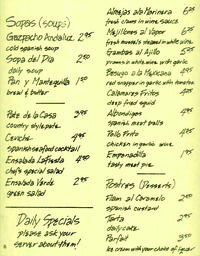 Sopas (soups)
Gazpacho Andaluz 2.95
cold spanish soup
Sopa del Dia 2.50
daily soup
Pan y Mantequilla 1.50
bread & butter
Pate de la Casa 3.95
country style pate
Ceviche 4.95
spanish seafood cocktail
Ensalada Lafreda 4.50
chef's special salad
Ensalada Verde 2.95
green salad
Daily Specials
please ask your
server about them!
Almejas ala Marinera 6.25
fresh clams in wine sauce
Mejillones al Vapor 6.25
fresh mussels steamed in white wine
Gambas al Ajillo 5.95
prawns in white wine with garlic
Besugo a la Mexicana 4.95
red snapper in garlic with tomatoe
Calamares Fritos 4.95
deep fried squid
Albondigas 4.95
spanish meat balls
Pollo Frito 4.95
chicken in garlic wine
Empanadilla 4.75
tasty meat pie
Postres (Desserts)
Flan al Caramelo 2.50
spanish custard
Tarta 2.95
daily cake
Parfait 3.50
ice cream with your choice of liquer